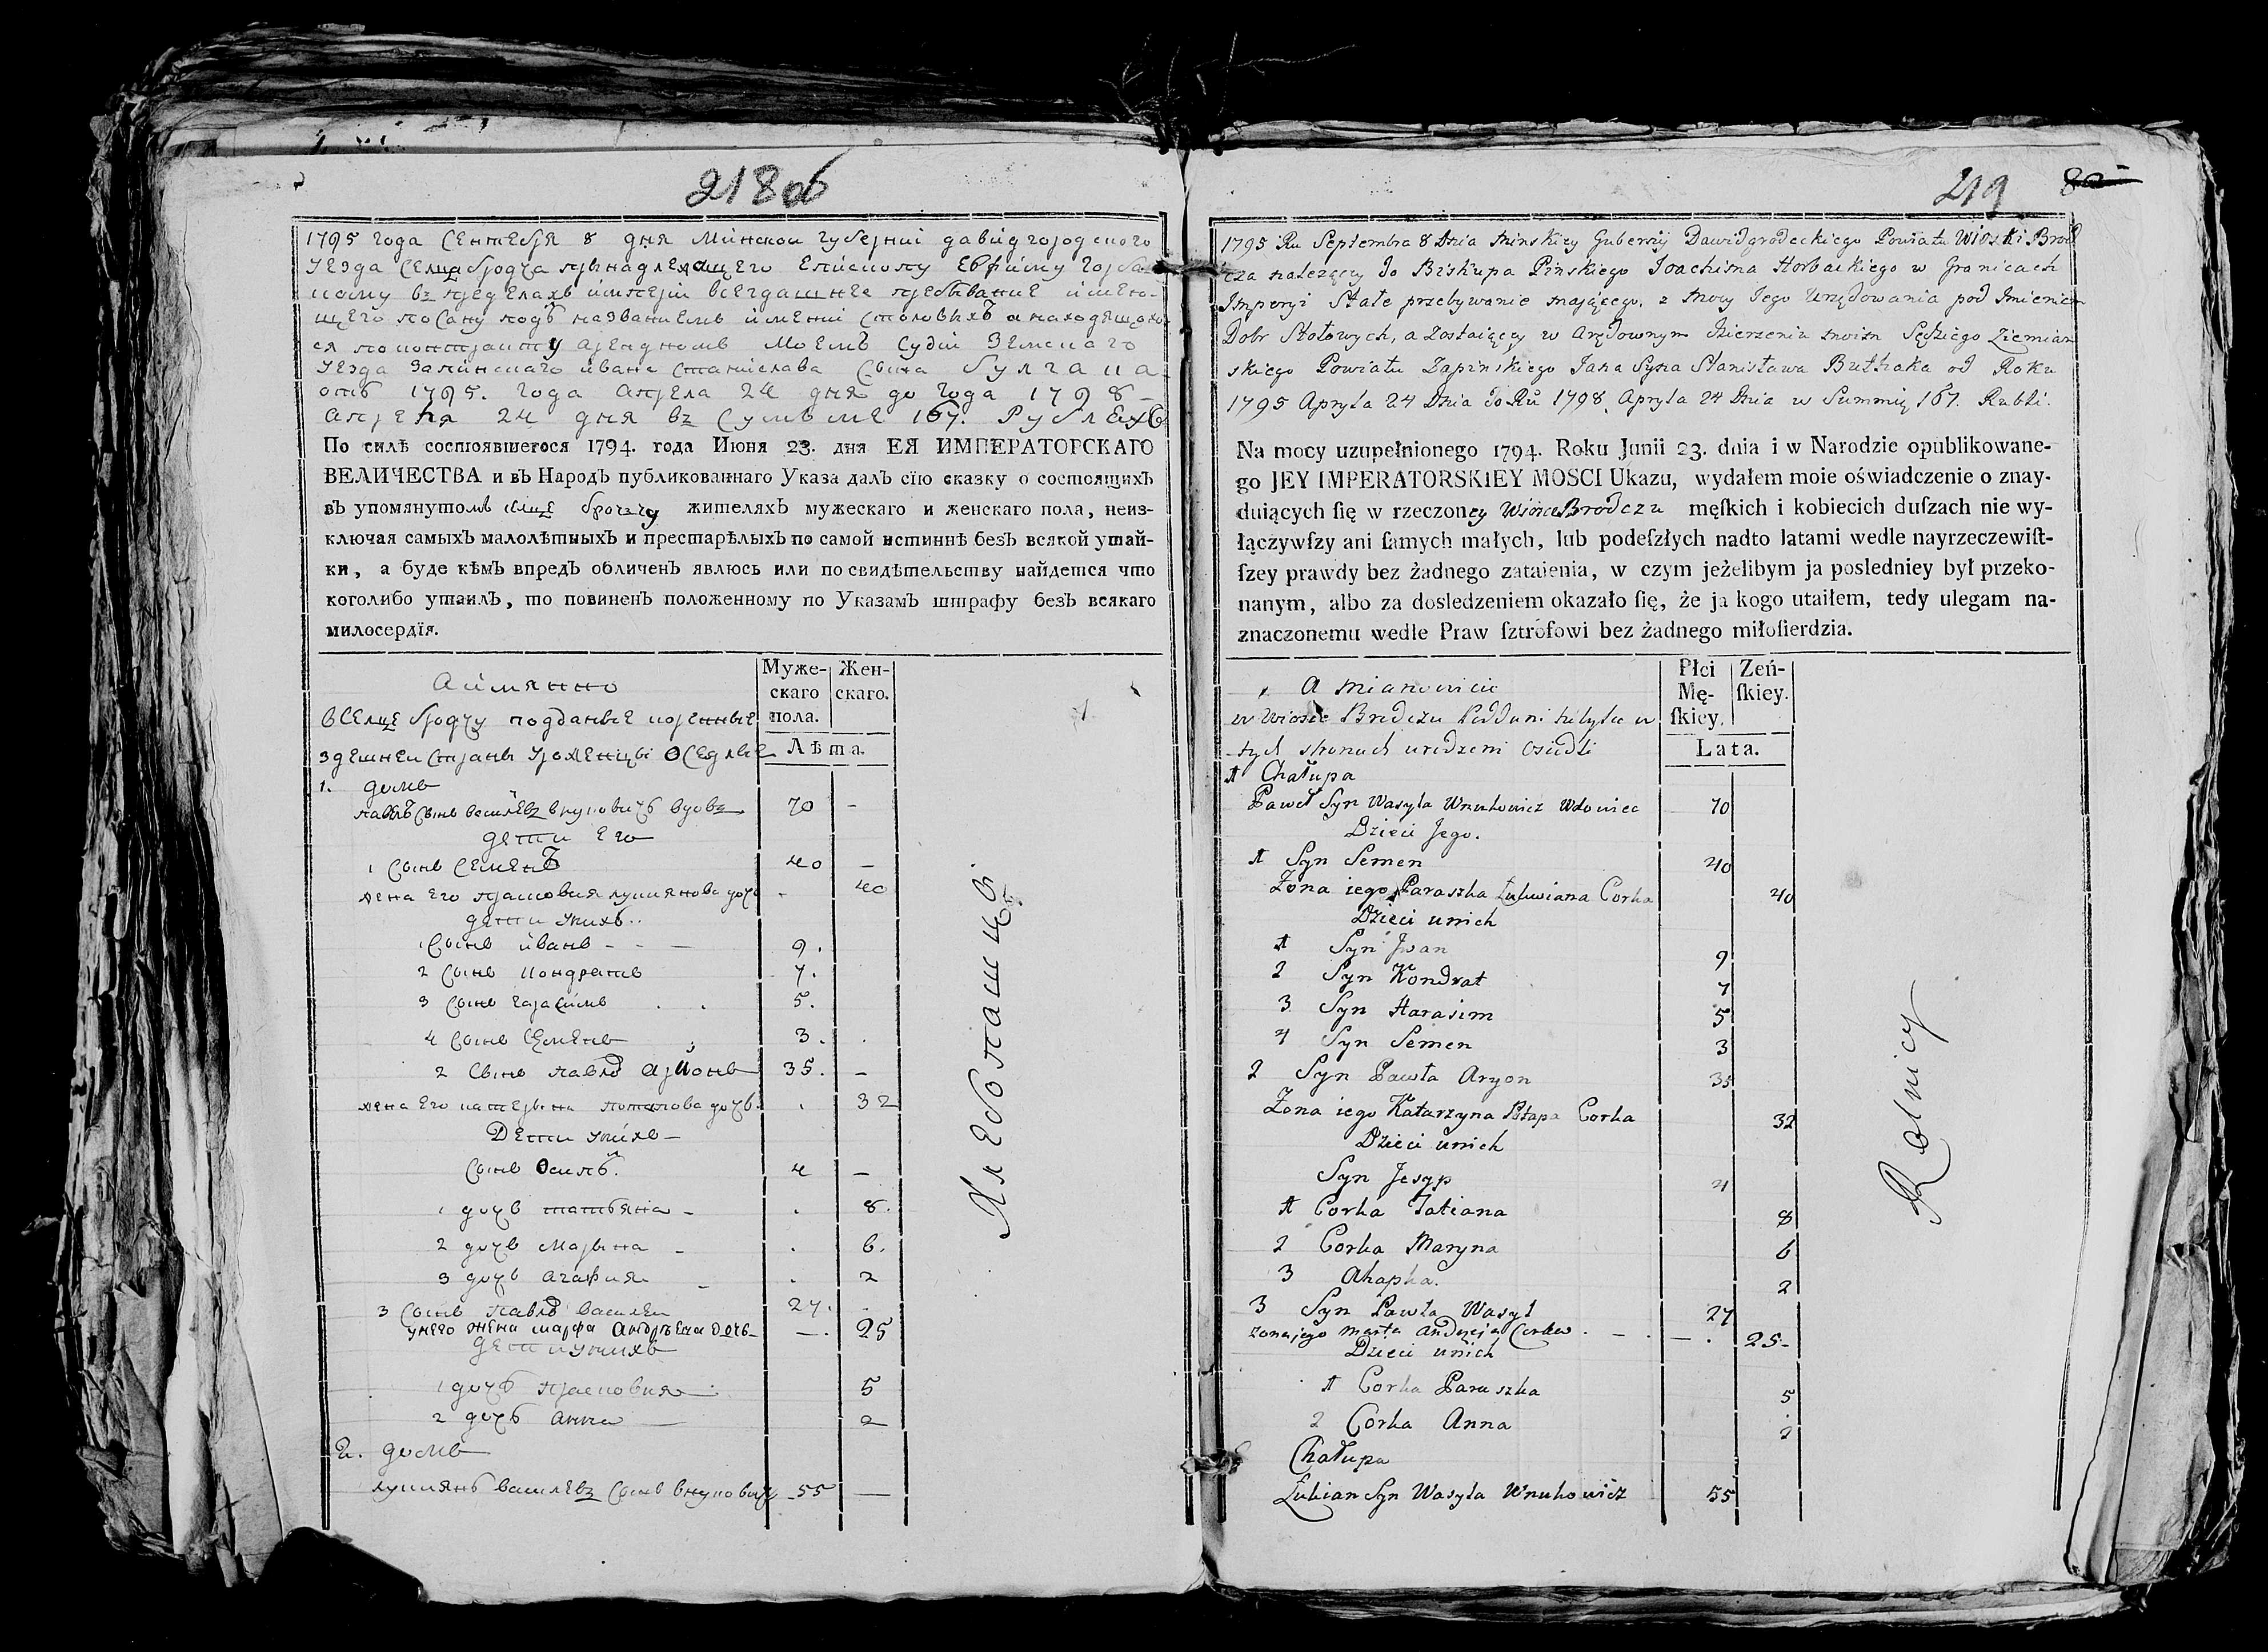 218об
1795 года Сентебря 8 дня Минской губернии давидгородского
Уезда Селца бродча прынадлежащего Епископу Ефиму Горба-
цкому въ пределахъ имперіи всегдашнее пребывание имею-
щего по Сану подъ названиемъ имений Столовыхъ а находящого-
ся по контракту арендномъ моемъ Судьи Земского
Уезда Запинского ивана Станислава Сына Булгака
отъ 1795. года апреля 24 дня до года 1798-
апреля 24 дня въ Суммъме 167. Рубляхъ
По силѣ состоявшегося 1794. года Июня 23. дня ЕЯ ИМПЕРАТОРСКАГО
ВЕЛИЧЕСТВА и въ Народъ публикованнаго Указа далъ сїю сказку о состоящихъ
въ упомянутомъ селце бродчу жителяхъ мужескаго и женскаго пола, неиз-
ключая самыхъ малолѣтныхъ и престарѣлыхъ по самой истиннѣ безъ всякой утай-
ки, а буде кѣмъ впредъ обличенъ явлюсь или по свидѣтельству найдется что
коголибо утаилъ, то повиненъ положенному по Указамъ штрафу безъ всякаго
милосердїя.
Муже-скаго пола. Жен-скаго.
Лѣта.
Аимянно
вСелце бродчу подданые коренные
здешней Страны Уроженцы оседлые
1. домъ
павелъ Сынъ васильевъ внуковичъ вдовъ 70 -
дети Его
1 Сынъ Семенъ 40 -
жена Его прасковия лукиянова дочь - 40
дети унихъ..
1 Сынъ иванъ - - - 9.
2 Сынъ кондратъ 7.
3 Сынъ гарасимъ 5.
4 Сынъ Семенъ 3.
2 Сынъ павла арйонъ 35. -
жена Его катерына потапова дочь. . 32
Дети унихъ-
Сынъ Осипъ. 4 -
1 дочь татьяна - . 8.
2 дочь Марына - . 6.
3 дочь агафия - . 2
3 Сынъ павла василеи 27. .
унего жена марфа андреева дочь- -. 25
дети унихъ
1 дочь прасковия 5
2 дочь анна 2
2. домъ
лукиянъ васильевъ Сынъ внуковичъ 55 -
Хлебопашцы.
219 82
1795 Ru Septembra 8 Dnia Minskiey Gubernij Dawidgrodeckiego Powiatu Wioski Brod
cza należącey do Biskupa Pinskiego Joachima Horbackiego w Granicach
Imperyi Stałe przebywanie mającego, z mocy Jego Urzędowania pod Imieniem
Dobr Stołowych, a zostaiącey w Arędownym Dzierzeniu moim Sędziego Ziemian
skiego Powiatu Zapinskiego Jana Syna Stanisława Bułhaka od Roku
1795 Apryla 24 Dnia do Ru 1798 Apryla 24 Dnia w Summię 167. Rubli.
Na mocy uzupełnionego 1794. Roku Junii 23. dnia i w Narodzie opublikowane-
go JEY IMPERATORSKIEY MOSCI Ukazu, wydałem moie oświadczenie o znay-
duiących ſię w rzeczoney Wiosce Brodczu męſkich i kobiecich duſzach nie wy-
łączywſzy ani ſamych małych, lub podeſzłych nadto latami wedle nayrzeczewiſt-
ſzey prawdy bez żadnego zataienia, w czym jeżelibym ja posledniey był przeko-
nanym, albo za dosledzeniem okazało ſię, że ja kogo utaiłem, tedy ulegam na-
znaczonemu wedle Praw ſztrofowi bez żadnego miłoſierdzia.
Płci Mę-ſkiey. Zeń-ſkiey.
Lata.
A mianowicie
w Wiosce Brodczu Poddani tutysze w
tych stronach urodzeni Osiedli
1 Chałupa
Paweł Syn Wasyla Wnukowicz Wdowiec 70
Dzieci Jego.
1 Syn Semen 40
Zona iego Paraszka Lukwiana Corka 40
Dzieci unich
1 Syn Jwan 9
2 Syn Kondrat 7
3 Syn Harasim 5
4 Syn Semen 3
2 Syn Pawła Aryon 35
Zona iego Katarzyna Potapa Corka 32
Dzieci unich
Syn Jesyp 4
1 Corka Tatiana 8
2 Corka Maryna 6
3 Ahapka. 2
3 Syn Pawła Wasyl 27
zona jego Marta Andrzeja Corka . - . -. 25-
Dzieci unich
1 Corka Paraszka 5
2 Corka Anna 2
Chałupa
Lukian Syn Wasyla Wnukowicz 55
Rolnicy